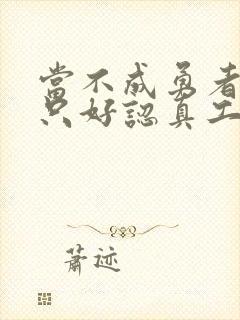 當不成勇者
只好認真工
蕭迹